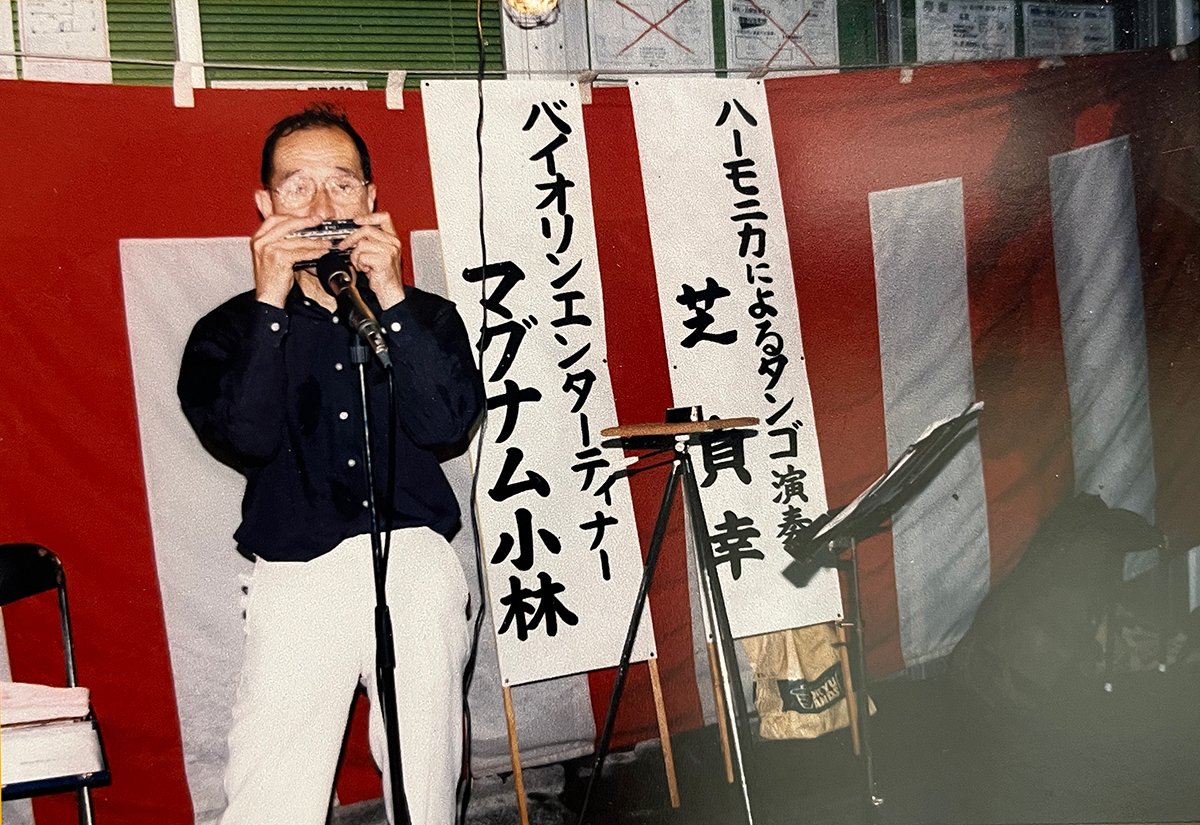 ハーモニカによるタンゴ演奏
芝 幸
バイオリンエンターティナー
マグナム小林